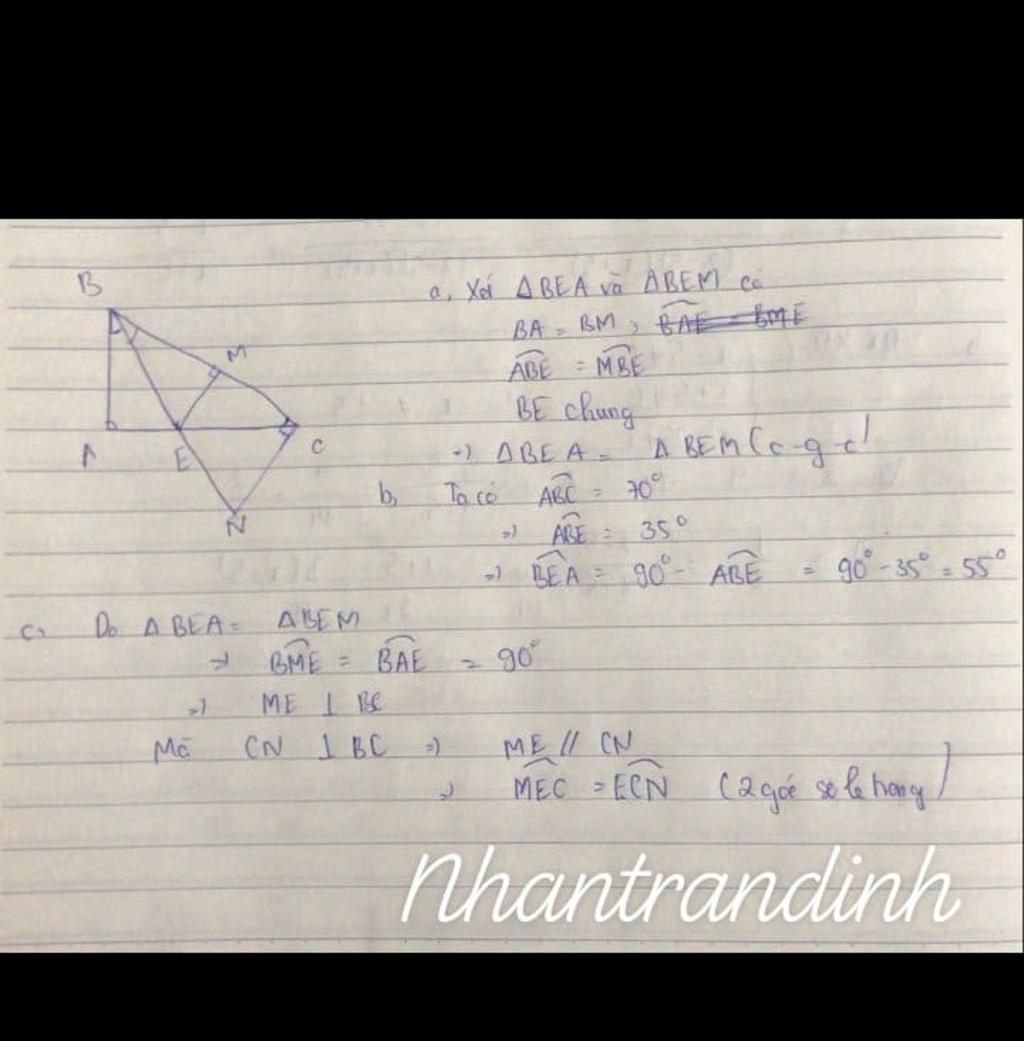 B
M
A
E
C
N
a, Xét ΔBEA và ΔBEM có
BA = BM, BAE = BME
ABE = MBE
BE chung
=) ΔBEA = ΔBEM (c-g-c)
b, Ta có ABC = 70°
=) ABE = 35°
=) BEA = 90° - ABE = 90° - 35° = 55°
c, Do ΔBEA = ΔBEM
=) BME = BAE = 90°
=) ME ⊥ BC
Mà CN ⊥ BC =) ME // CN
=) MEC = ECN (2 góc se le trong)
Nhantrandinh